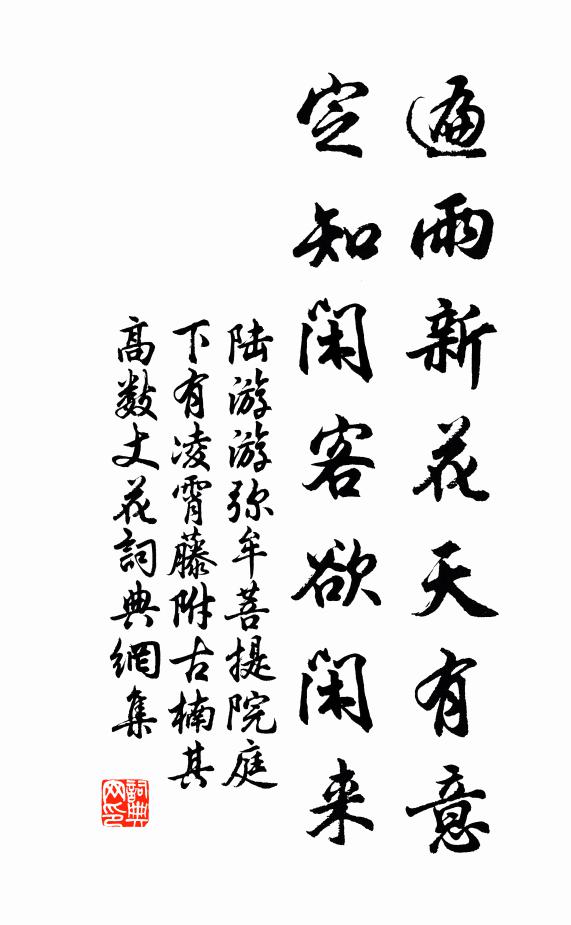 遍雨新花天有意
定知闲客欲闲来
陆游游弥牟菩提院庭
下有凌霄藤附古楠其
高数丈花詞典網集
詞典网印